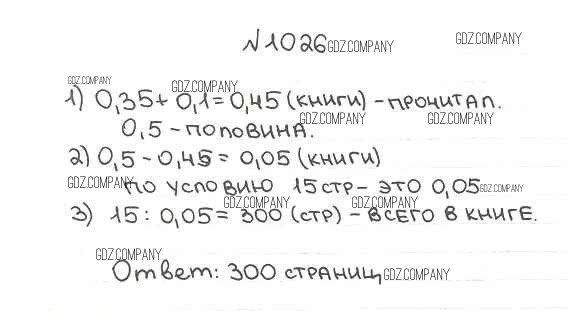 №1026 GDZ.COMPANY GDZ.COMPANY
GDZ.COMPANY GDZ.COMPANY
1) 0,35+ 0,1= 0,45 (книги) - прочитал.
GDZ.COMPANY GDZ.COMPANY
0,5 - половина.
2) 0,5 - 0,45 = 0,05 (книги)
GDZ.COMPANY по условию 15стр- это 0,05 GDZ.COMPANY
GDZ.COMPANY GDZ.COMPANY
3) 15 : 0,05 = 300 (стр) - всего в книге.
GDZ.COMPANY
Ответ: 300 страниц GDZ.COMPANY